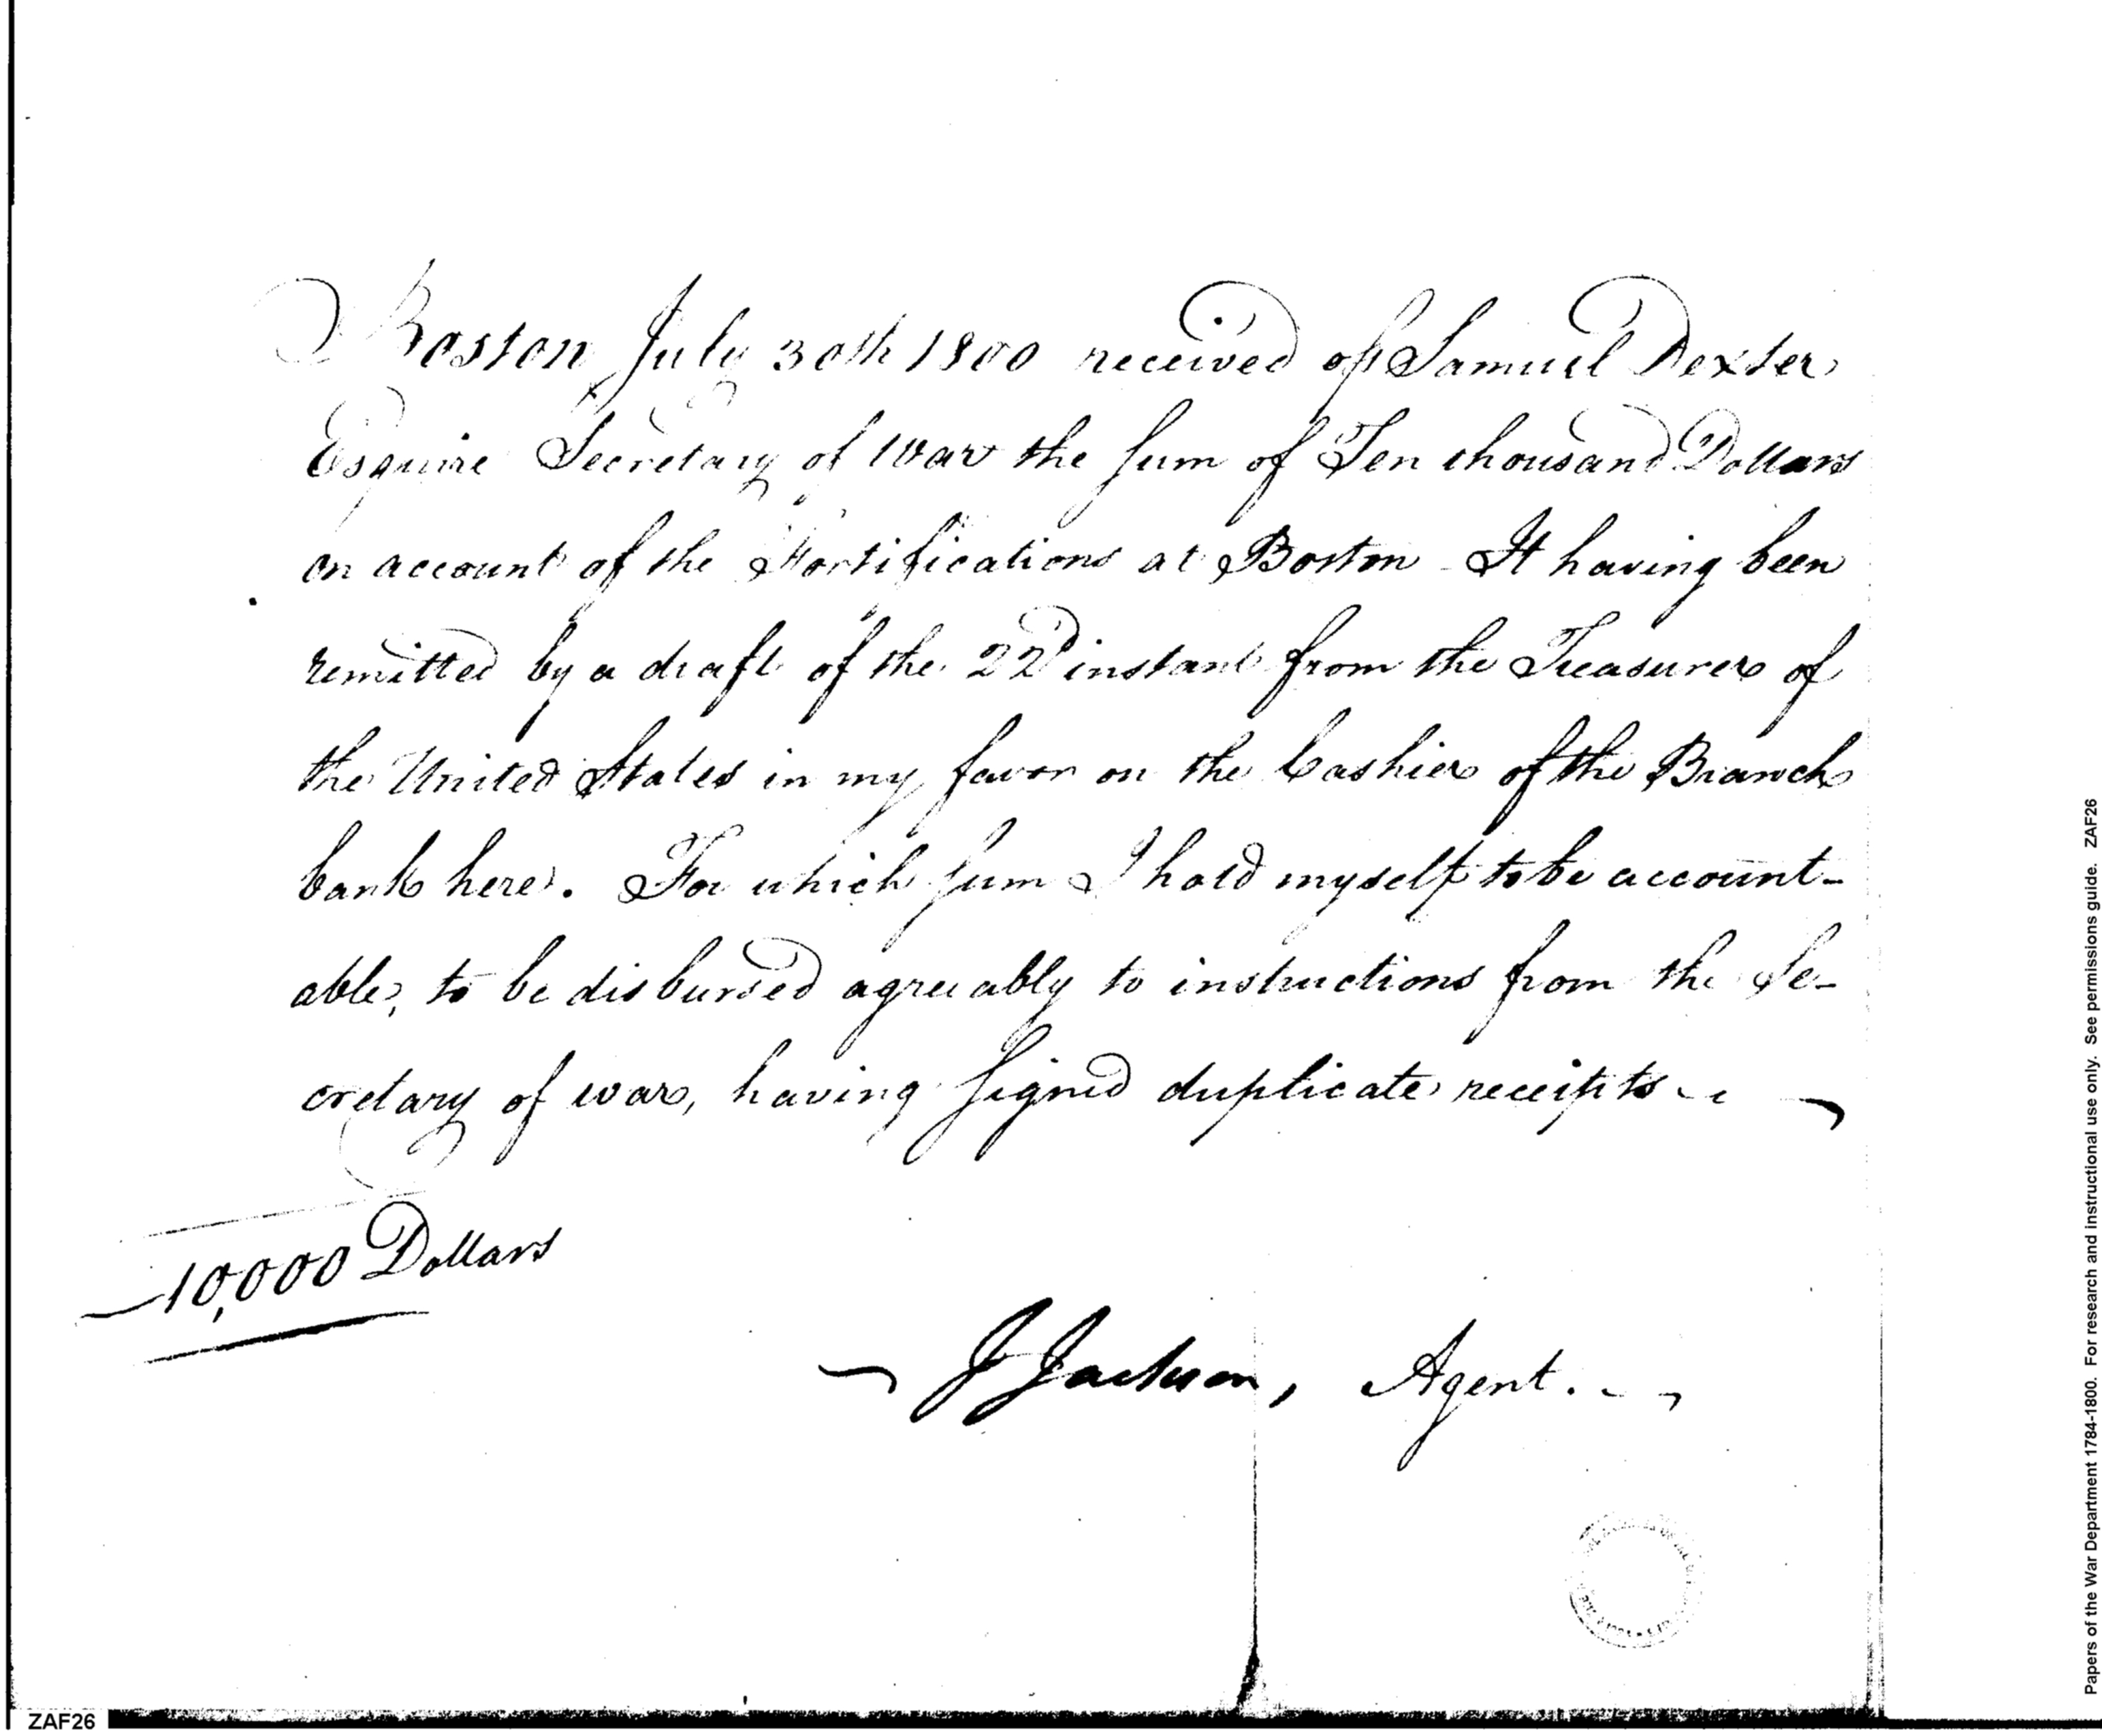 Boston July 30th 1800 received of Samuel Dexter
Esquire Secretary of War the sum of Ten thousand Dollars
on account of the Fortifications at Boston - It having been
remitted by a draft of the 22d instant from the Treasurer of
the United States in my favor on the Cashier of the Branch
bank here. For which sum I hold myself to be account-
able, to be disbursed agreeably to instructions from the Se-
cretary of war, having signed duplicate receipts
10,000 Dollars
J Jackson, Agent.
ZAF26
Papers of the War Department 1784-1800. For research and instructional use only. See permissions guide. ZAF26